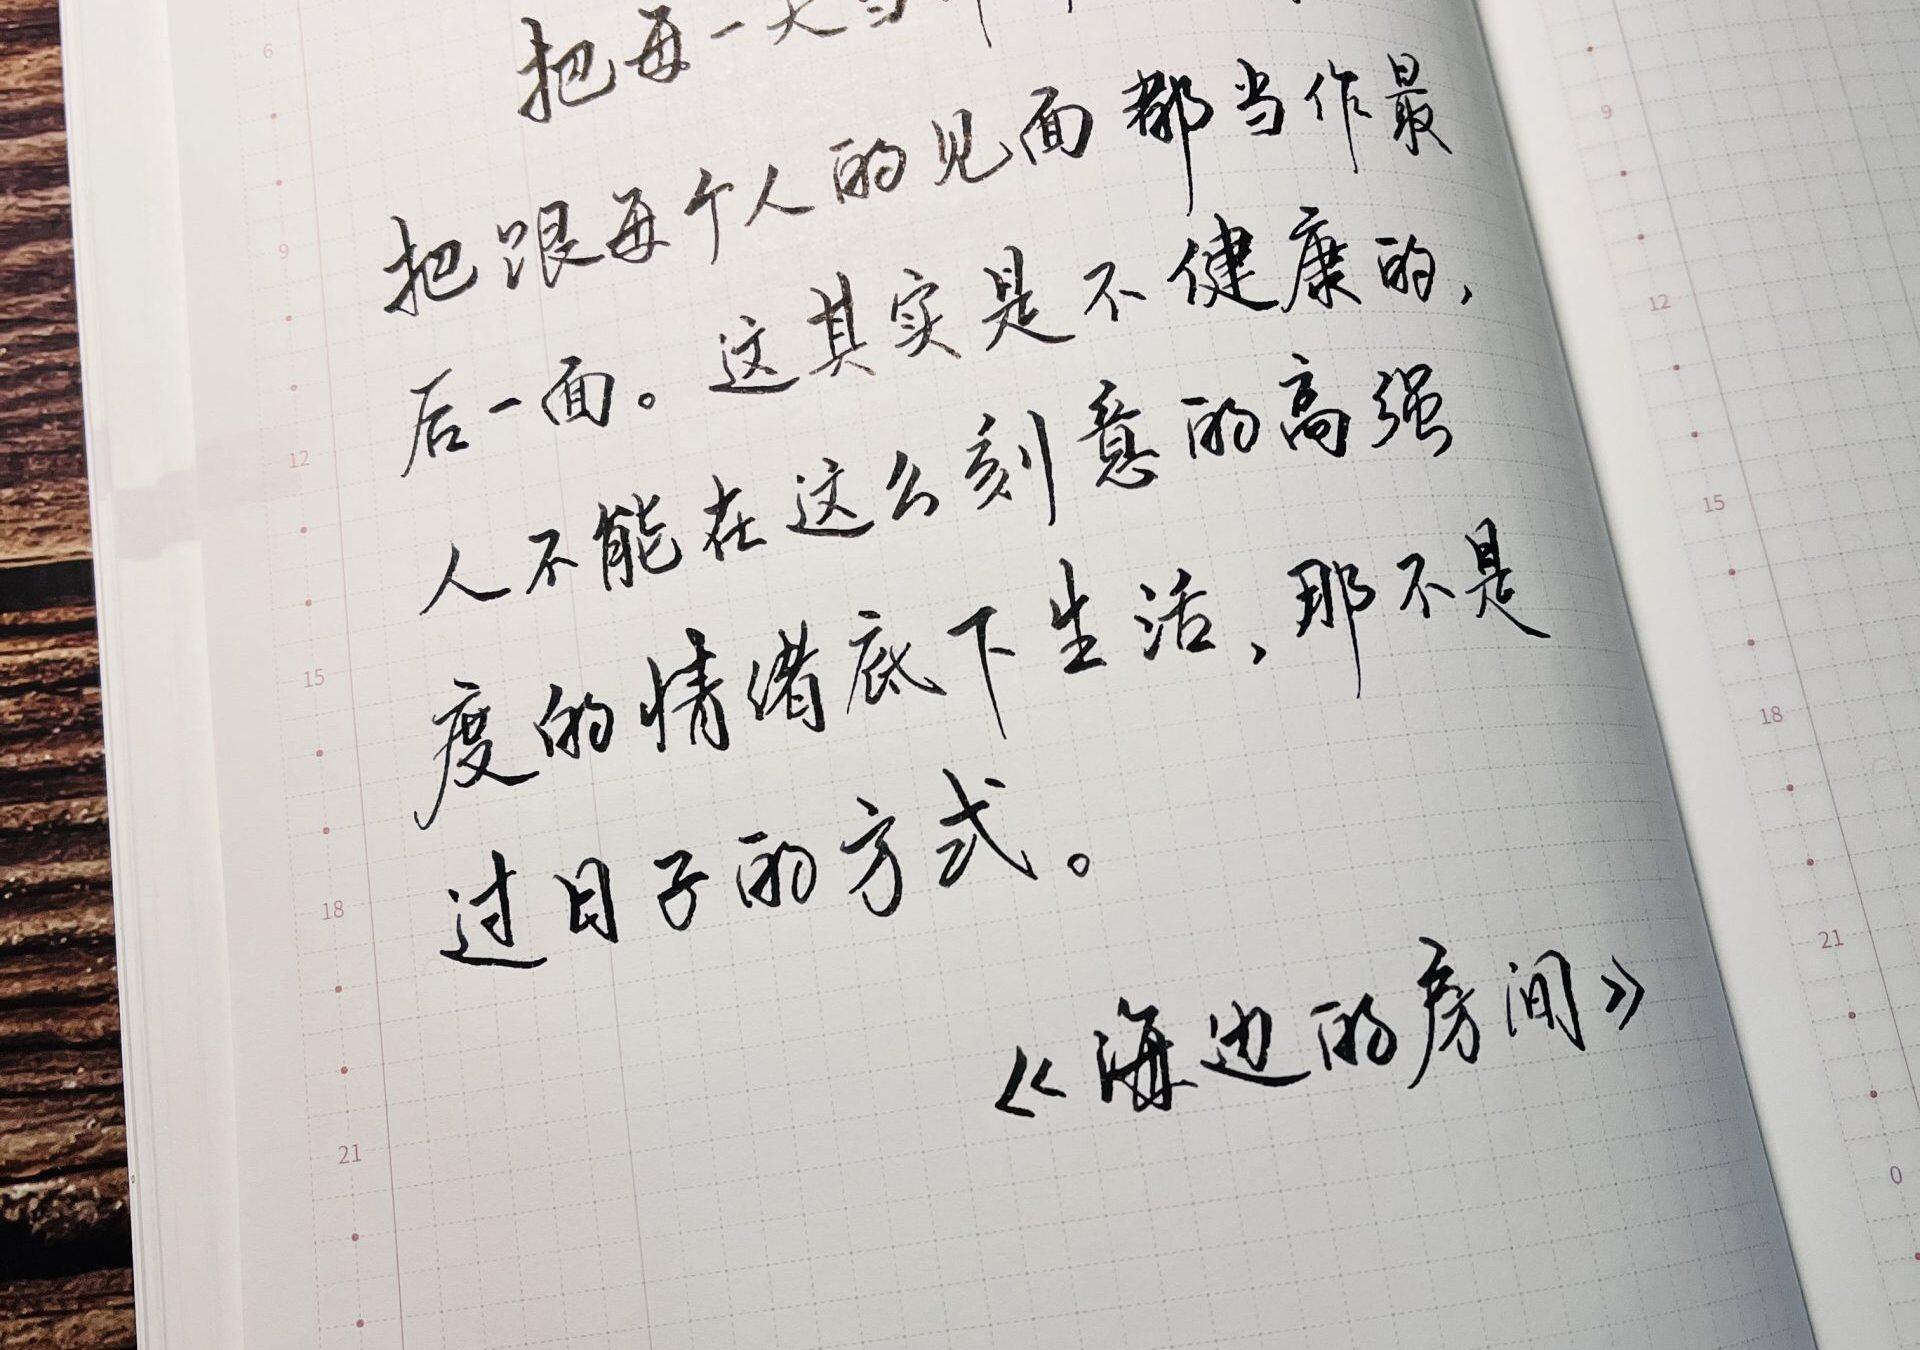 把每一天当
把跟每个人的见面都当作最
后一面。这其实是不健康的,
人不能在这么刻意的高强
度的情绪底下生活,那不是
过日子的方式。
《海边的房间》
6
9
12
15
18
21
9
12
15
18
21
0